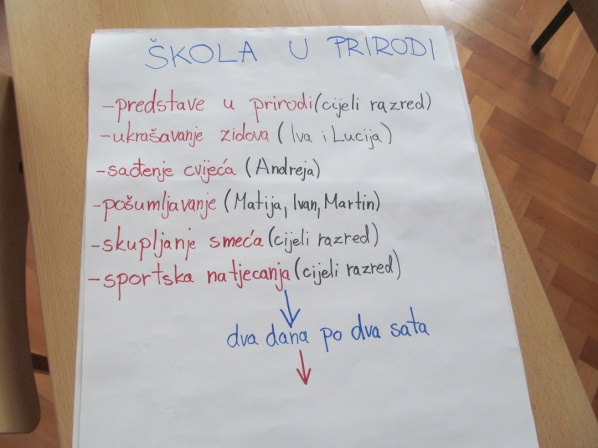 ŠKOLA U PRIRODI
-predstave u prirodi (cijeli razred)
-ukrašavanje zidova (Iva i Lucija)
-sađenje cvijeća (Andreja)
-pošumljavanje (Matija, Ivan, Martin)
-skupljanje smeća (cijeli razred)
-sportska natjecanja (cijeli razred)
dva dana po dva sata